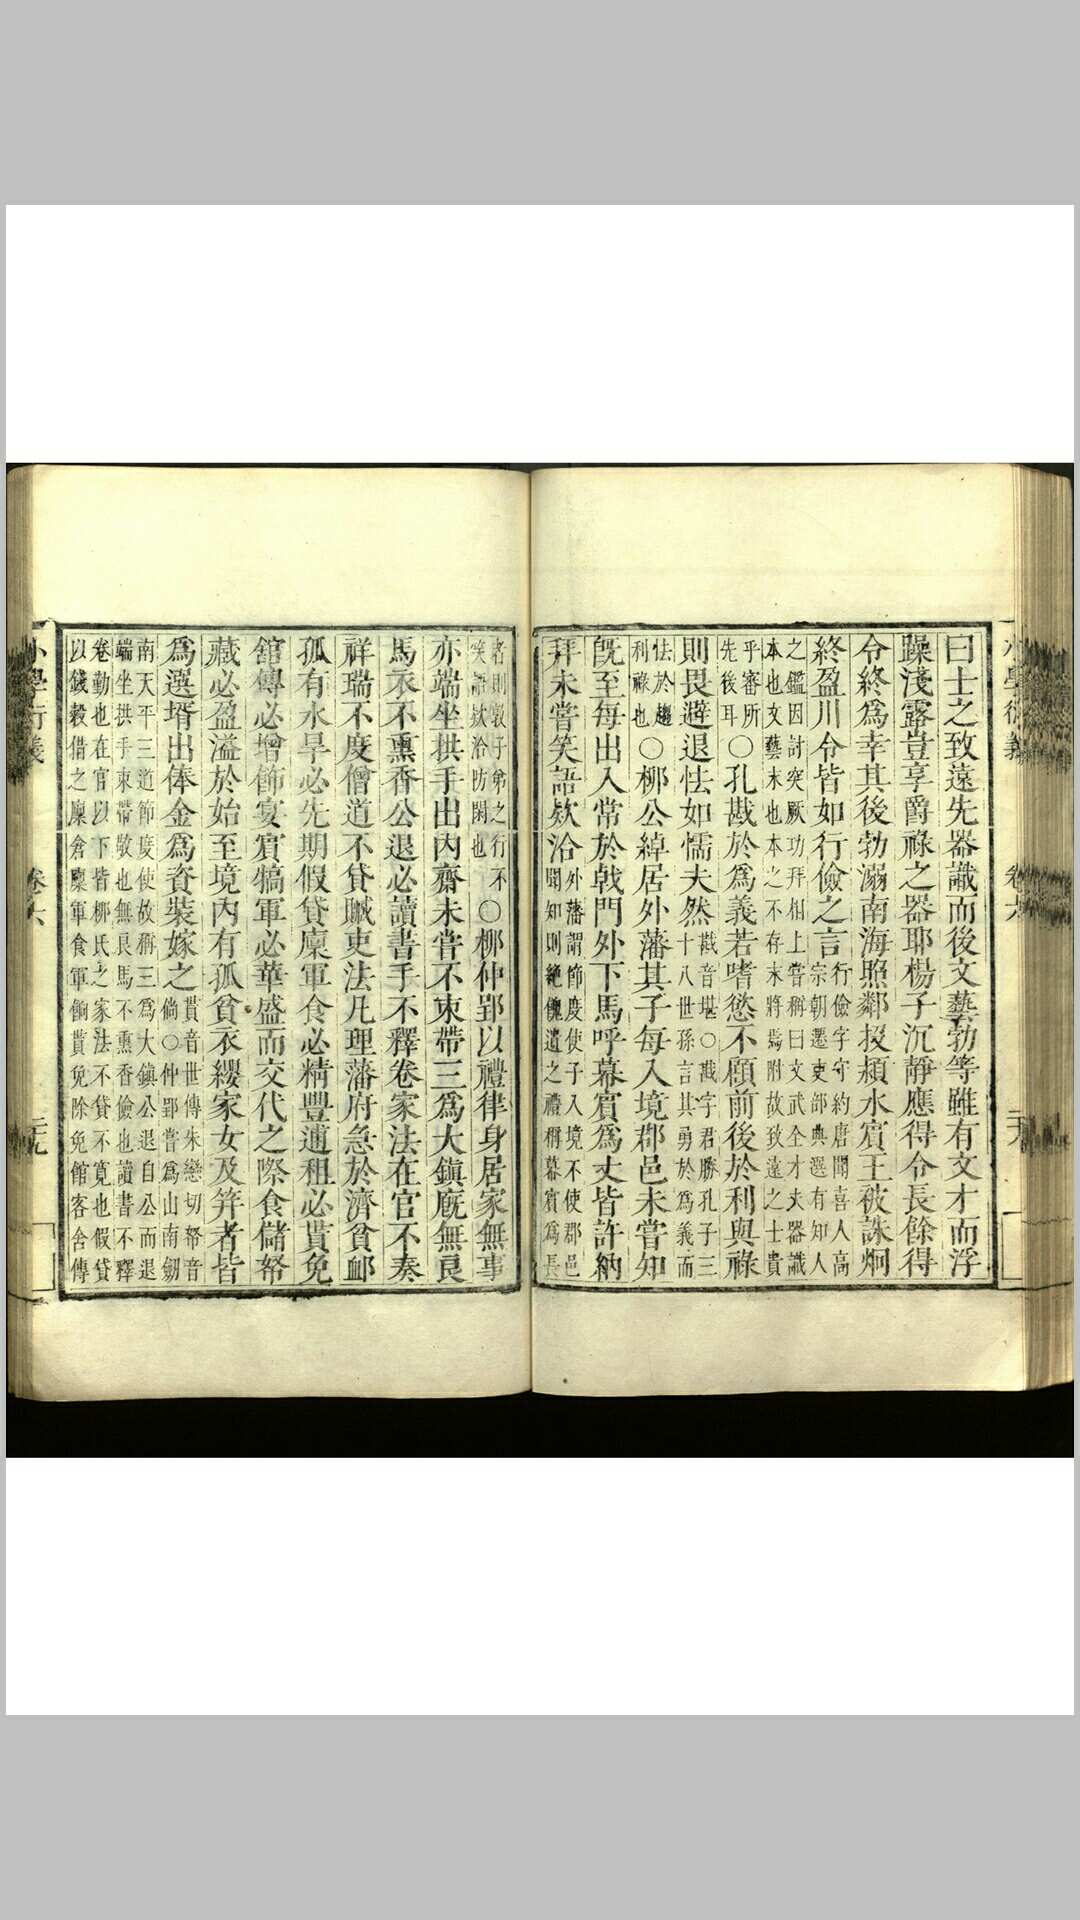 曰士之致遠先器識而後文藝勃等雖有文才而浮
躁淺露豈享爵祿之器耶楊子沉靜應得令長餘得
令終爲幸其後勃溺南海照鄰投潁水賓王被誅炯
終盈川令皆如行儉之言行儉字守約唐聞喜人高
宗朝遷吏部典選有知人
之鑑因討突厥功拜相上嘗稱曰文武全才夫器識
本也文藝末也本之不存末將焉附故致遠之士貴
乎審所
先後耳○孔戡於爲義若嗜慾不顧前後於利與祿
則畏避退怯如懦夫然戡音堪○戡字君勝孔子三
十八世孫言其勇於爲義而
怯於趨
利祿也○柳公綽居外藩其子每入境郡邑未嘗知
既至每出入常於戟門外下馬呼幕賓爲丈皆許納
拜未嘗笑語欵洽外藩謂節度使子入境不使郡邑
聞知則絶餽遺之禮稱幕賓爲長
者則敦子弟之行不
笑語欵洽防閑也○柳仲郢以禮律身居家無事
亦端坐拱手出內齋未嘗不束帶三爲大鎮廐無良
馬衣不熏香公退必讀書手不釋卷家法在官不奏
祥瑞不度僧道不貸贓吏法凡理藩府急於濟貧卹
孤有水旱必先期假貸廩軍食必精豐逋租必貰免
舘傳必增飾宴賓犒軍必華盛而交代之際食儲帑
藏必盈溢於始至境內有孤貧衣纓家女及笄者皆
爲選壻出俸金爲資裝嫁之貰音世傳朱戀切帑音
倘○仲郢嘗爲山南劒
南天平三道節度使故稱三爲大鎮公退自公而退
端坐拱手束帶敬也無良馬不熏香儉也讀書不釋
卷勤也在官以下皆柳氏之家法不貸不寬也假貸
以錢穀借之廩倉廩軍食軍餉貰免除免館客舍傳
小學衍義
卷六
小學衍義
卷六